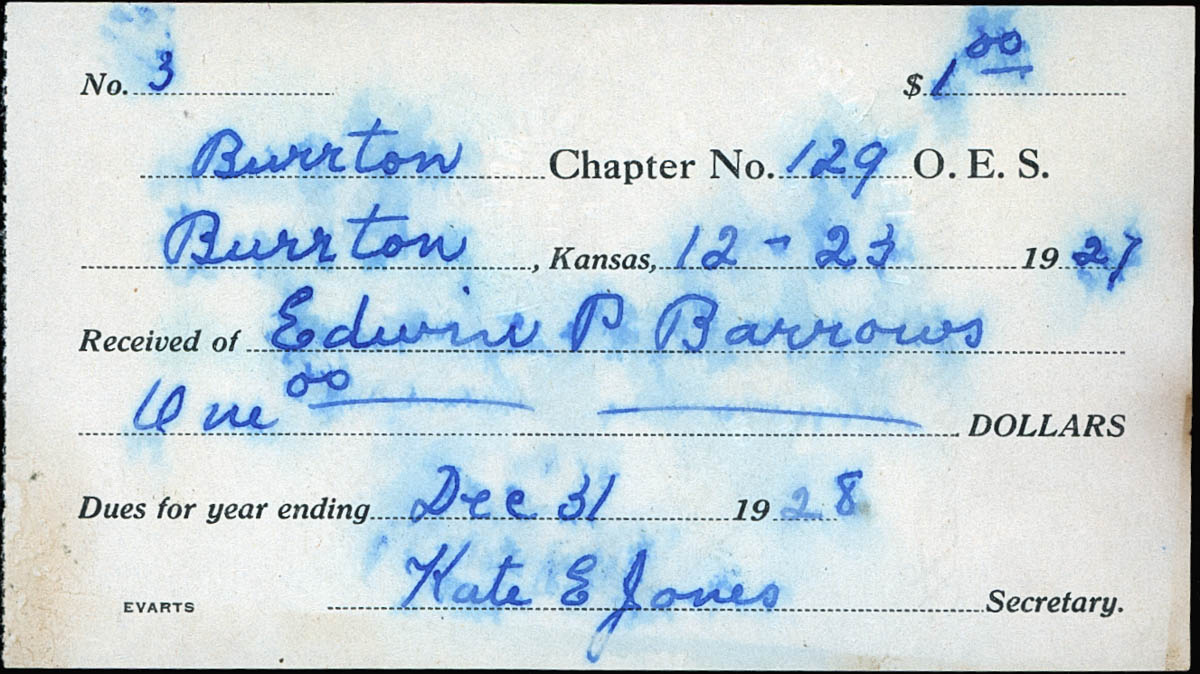 No. 3 $1.00
Burrton Chapter No. 129 O. E. S.
Burrton, Kansas, 12 - 23 1927
Received of Edwin P Barrows
One 00 DOLLARS
Dues for year ending Dec 31 1928
Kate E Jones Secretary.
EVARTS